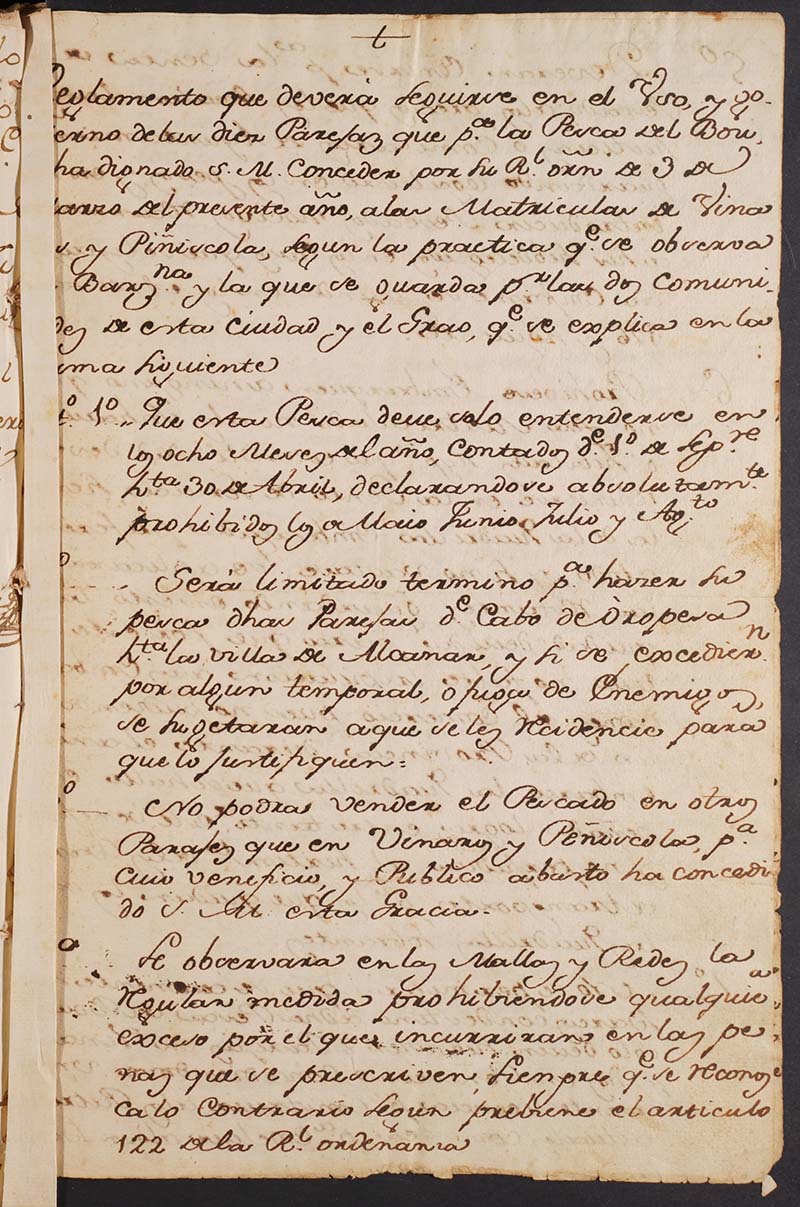 t
Reglamento que deverá seguirse en el Vso, y go-
ierno delas diez Parejas que p.ª la Pesca del Bou,
ha dignado S. M. Conceder por su R.l orñ de 3 de
arzo del presente año, alas Matriculas de Vina
s y Piñiscola, segun la practica q.e se observa
Barz.na y la que se guarda p.r las dos Comuni-
des de esta Ciudad y el Grao, q.e se explica en la
ma siguiente
1.º Que esta Pesca deve solo entenderse en
los ocho Meses del año, contados d.e 1.º de Sep.re
h.ta 30 de Abril, declarandose absolutam.te
prohibidos los a Maio Junio, Julio y Ag.to
Será limitado termino p.ª hazer su
pesca dhas Parejas d.e Cabo de Oropesa
h.ta la villa de Alcanar, y si se excedier.n
por algun temporal, o fuga de Enemigos,
se sugetaran a que seles recidencie para
que lo justifiquen:
No podra vender el Pescado en otros
Parajes que en Vinaros y Peñiscola, p.ª
cuio veneficio, y Publico abasto ha concedi
do S. M. esta Gracia.
Se observara en las Mallas y Redes la
regular medida prohibiendose qualquier
exceso por el que incurriran en las pe-
nas que se prescriven, siempre q.e se reconoz
ca lo Contrario segun prebiene el articulo
122 dela R.l ordenanza